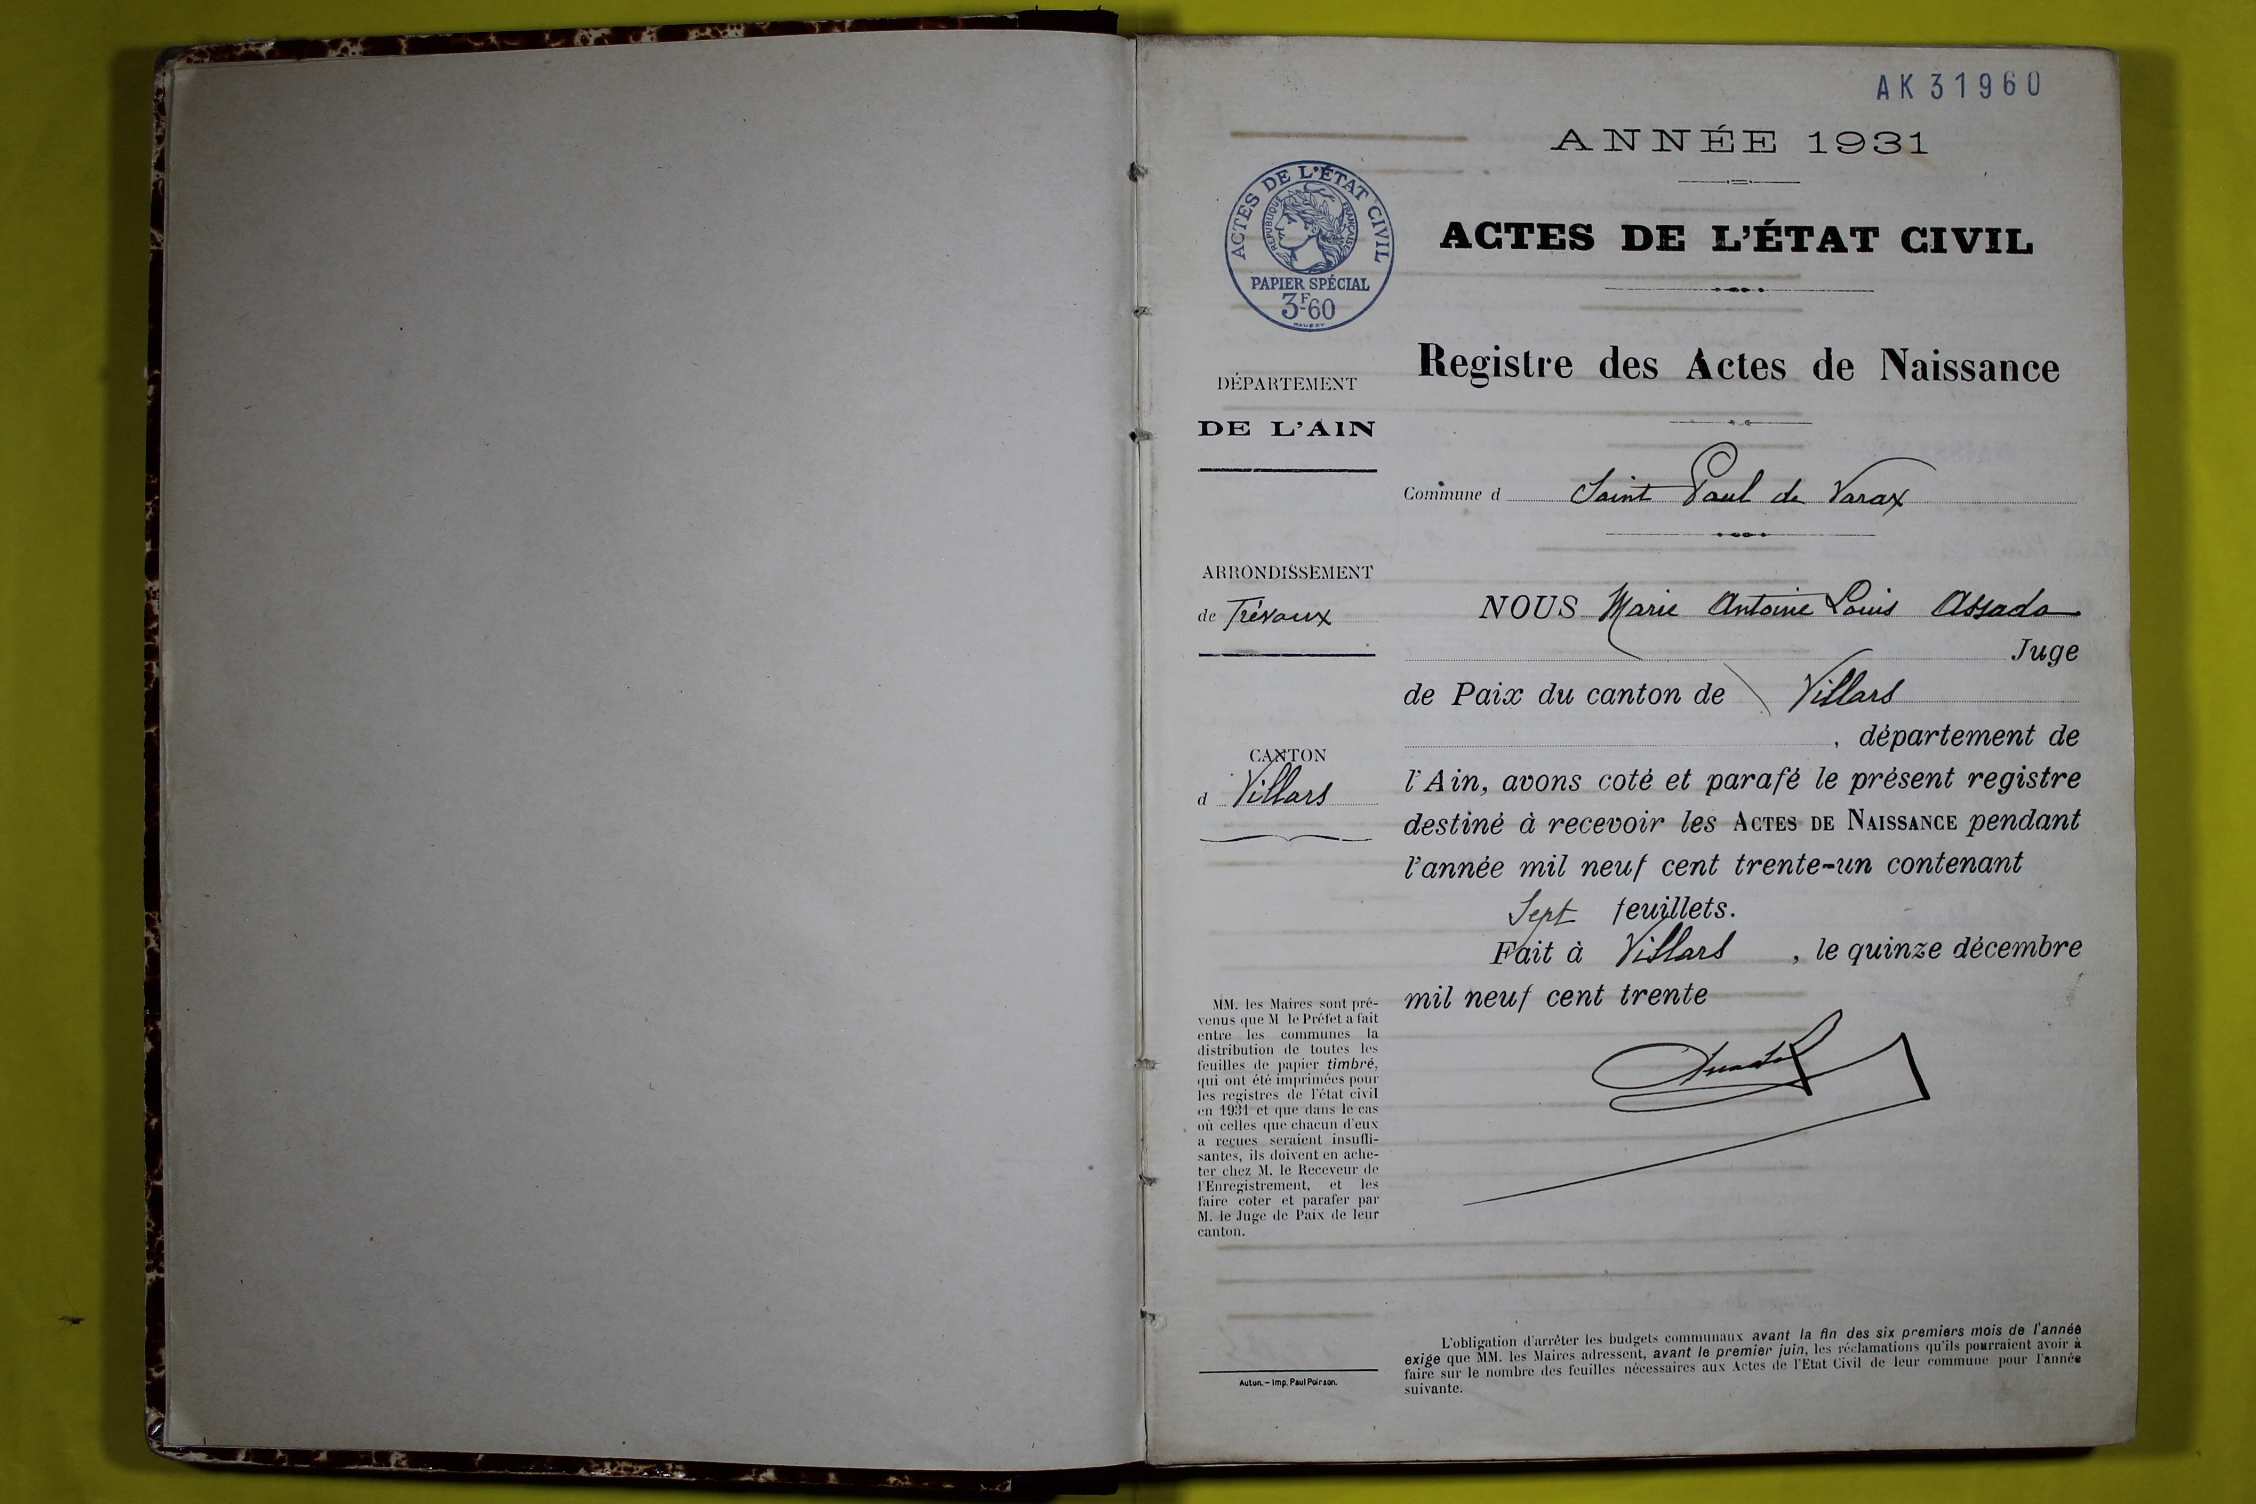 AK 31960
ANNÉE 1931
ACTES DE L'ÉTAT CIVIL
RÉPUBLIQUE FRANÇAISE
PAPIER SPÉCIAL
3F60
ACTES DE L'ÉTAT CIVIL
Registre des Actes de Naissance
DÉPARTEMENT
DE L'AIN
Commune d Saint Paul de Varax
ARRONDISSEMENT
de Trévoux
CANTON
d Villars
NOUS Marie Antoine Louis Assada
Juge
de Paix du canton de Villars
, département de
l'Ain, avons coté et parafé le présent registre
destiné à recevoir les ACTES DE NAISSANCE pendant
l'année mil neuf cent trente-un contenant
Sept feuillets.
Fait à Villars , le quinze décembre
mil neuf cent trente
MM. les Maires sont pré-
venus que M le Préfet a fait
entre les communes la
distribution de toutes les
feuilles de papier timbré,
qui ont été imprimées pour
les registres de l'état civil
en 1931 et que dans le cas
où celles que chacun d'eux
a reçues seraient insuffi-
santes, ils doivent en ache-
ter chez M. le Receveur de
l'Enregistrement, et les
faire coter et parafer par
M. le Juge de Paix de leur
canton.
Autun. – Imp. Paul Poirson.
L'obligation d'arrêter les budgets communaux avant la fin des six premiers mois de l'année
exige que MM. les Maires adressent, avant le premier juin, les réclamations qu'ils pourraient avoir à
faire sur le nombre des feuilles nécessaires aux Actes de l'Etat Civil de leur commune pour l'année
suivante.